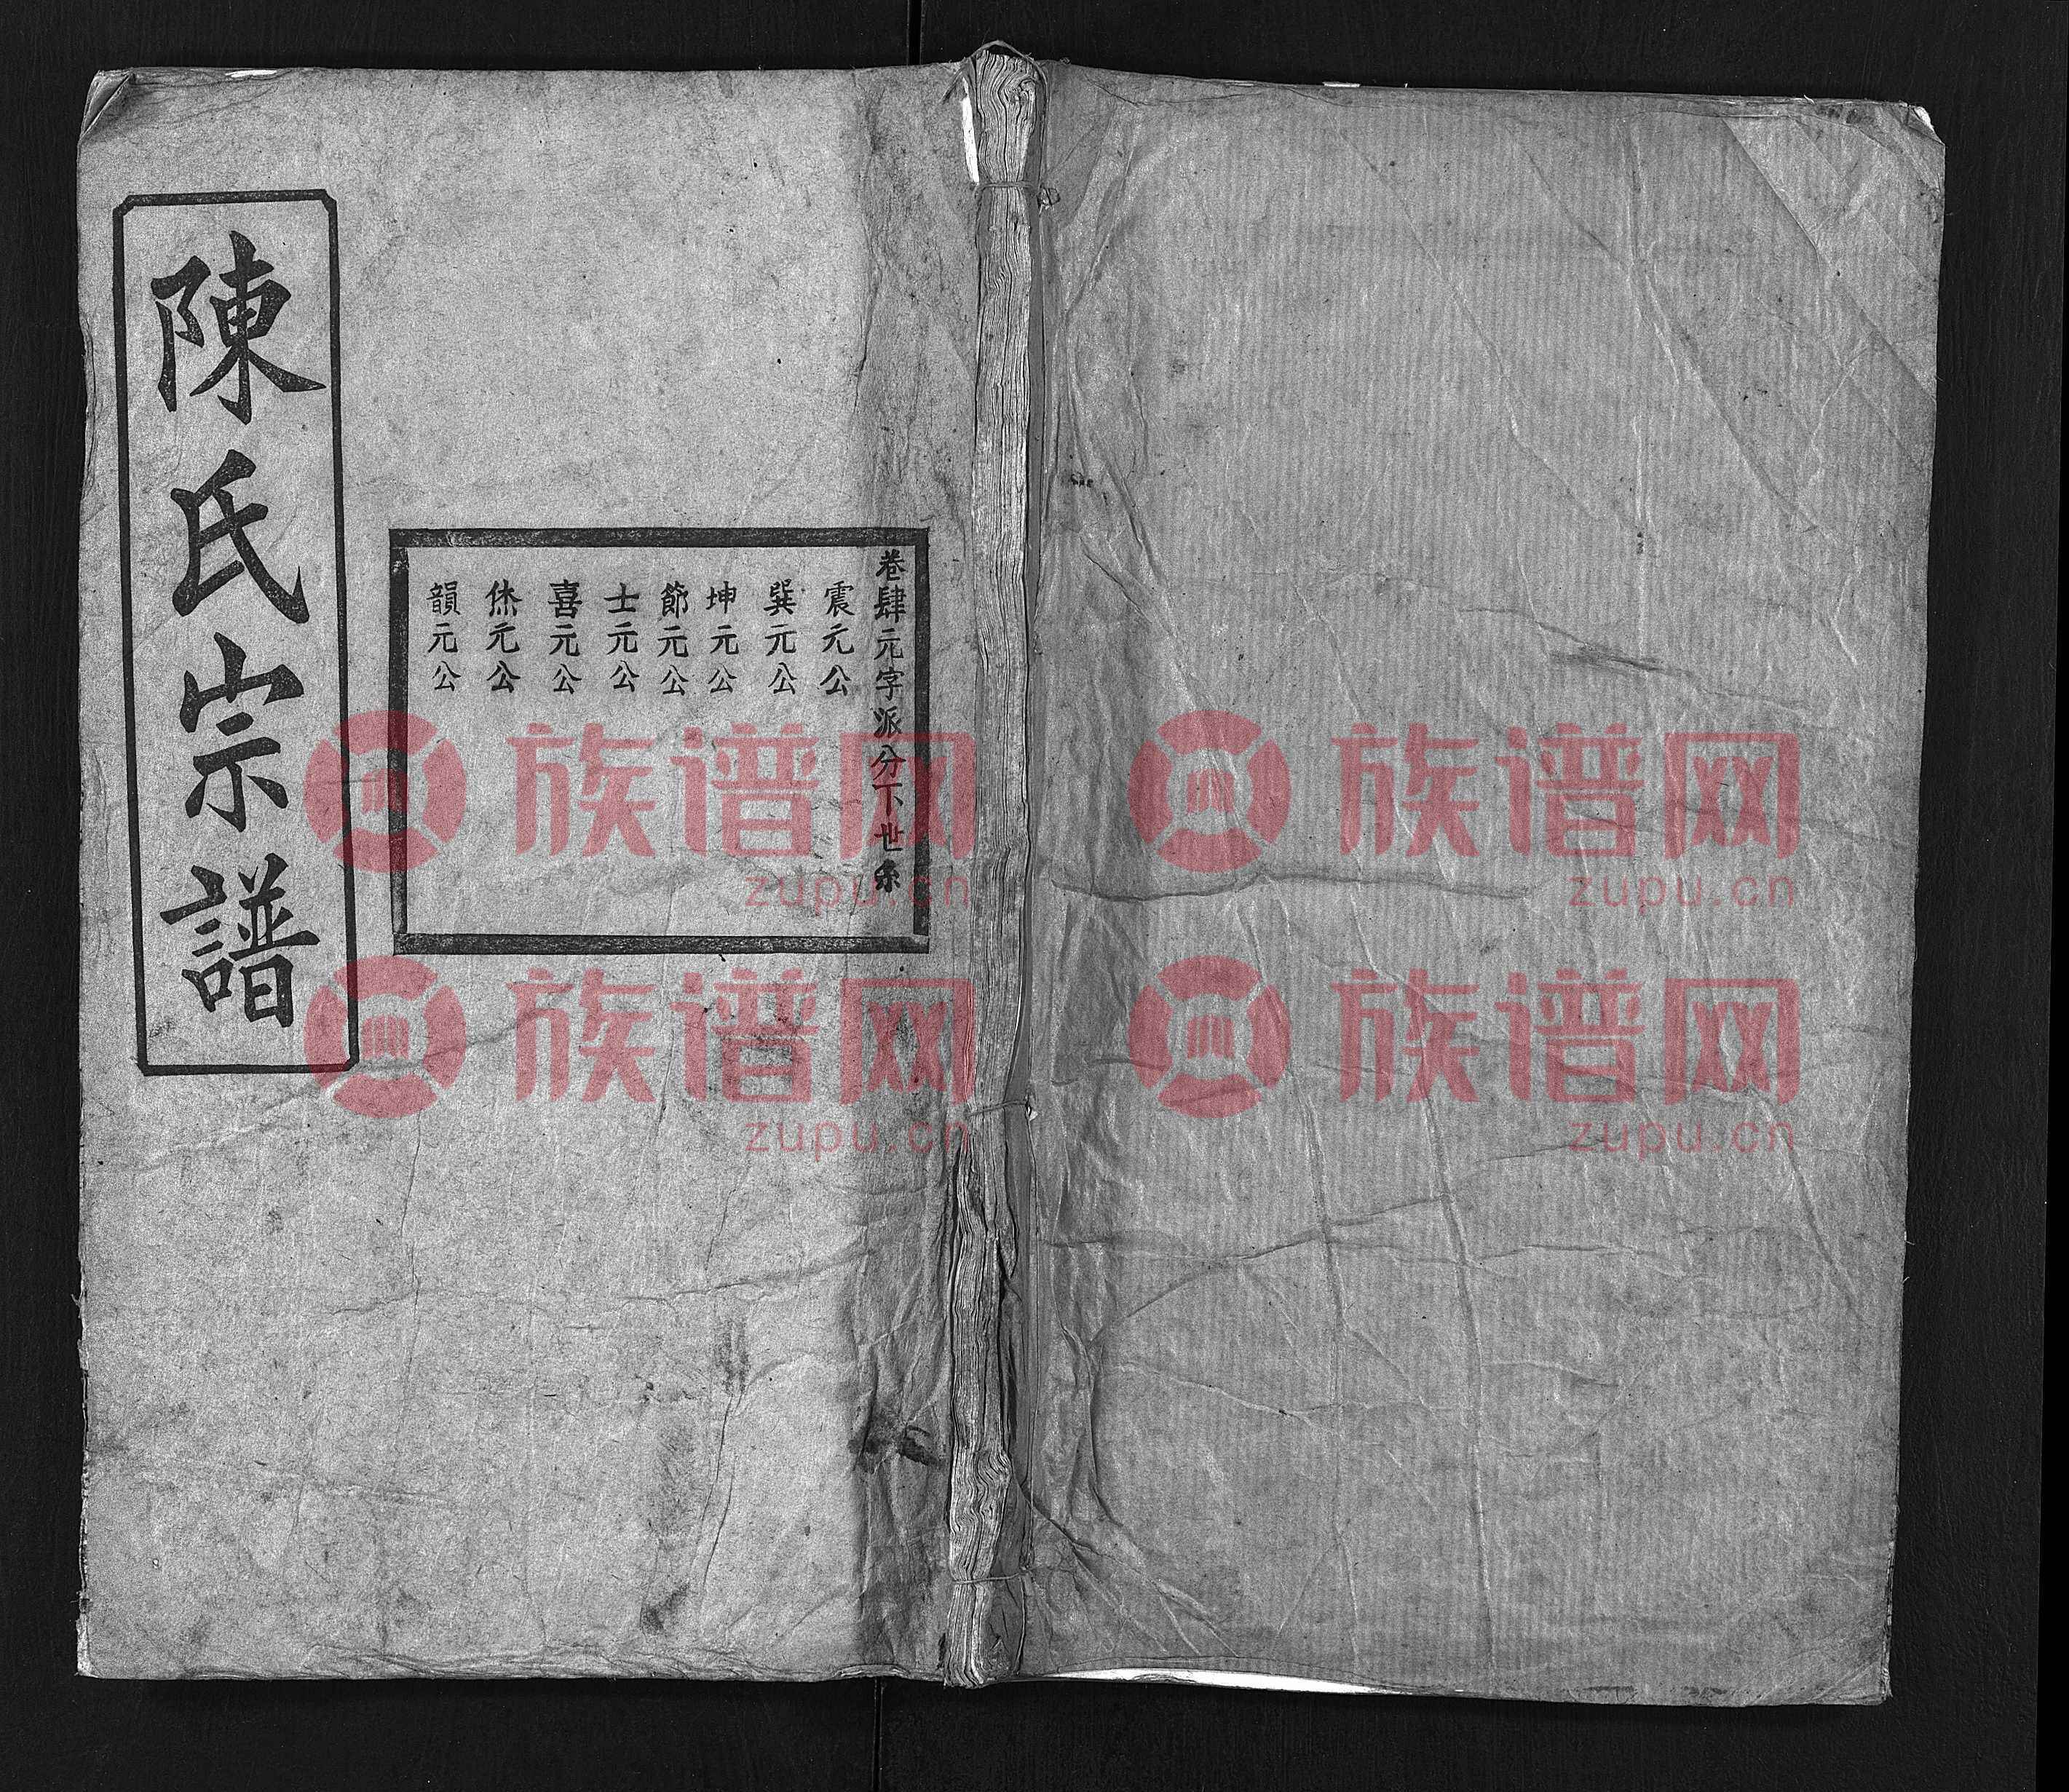 陳氏宗譜
卷肆元字派分下世系
震元公
巽元公
坤元公
節元公
士元公
喜元公
烋元公
韻元公
族谱网
zupu.cn
族谱网
zupu.cn
族谱网
zupu.cn
族谱网
zupu.cn